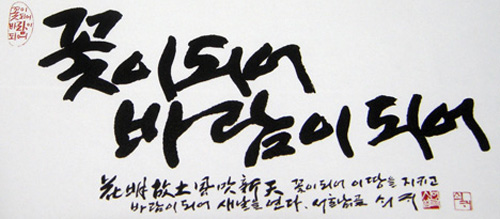 꽃이되어
바람이되어
花開故土風吹新天 꽃이되어 이땅을 지키고
바람이되어 새날을 연다.